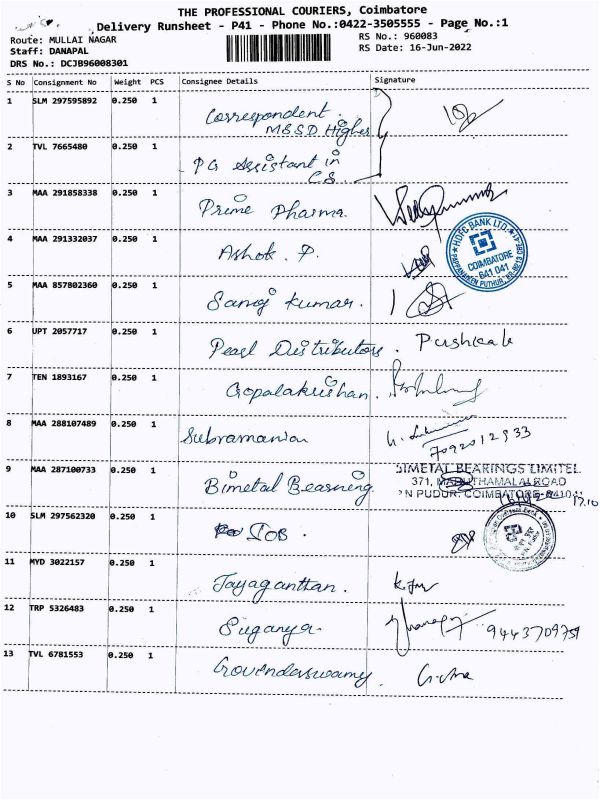 THE PROFESSIONAL COURIERS, Coimbatore
Delivery Runsheet - P41 - Phone No.:0422-3505555 - Page No.:1
Route: MULLAI NAGAR
RS No.: 960083
Staff: DANAPAL
RS Date: 16-Jun-2022
DRS No.: DCJB96008301
S No Consignment No Weight PCS Consignee Details Signature
1 SLM 297595892 0.250 1 Correspondent.
MSSD Higher
2 TVL 7665480 0.250 1 PG Assistant in
C.S.
3 MAA 291858338 0.250 1 Prime Pharma.
4 MAA 291332037 0.250 1 Ashok. P.
HDFC BANK LTD.
COIMBATORE
641 041
5 MAA 857802360 0.250 1 Sanoj kumar.
6 UPT 2057717 0.250 1 Pearl Distributors. Pushkala
7 TEN 1893167 0.250 1 Gopalakrishan.
8 MAA 288107489 0.250 1 Subramanian
7092012933
9 MAA 287100733 0.250 1 Bimetal Bearning
BIMETAL BEARINGS LIMITED
371, MARUTHAMALAI ROAD
P N PUDUR, COIMBATORE-641041
17.10
10 SLM 297562320 0.250 1 IOB.
11 MYD 3022157 0.250 1 Jayaganthan.
12 TRP 5326483 0.250 1 Suganya.
9443709759
13 TVL 6781553 0.250 1 Govindaswamy